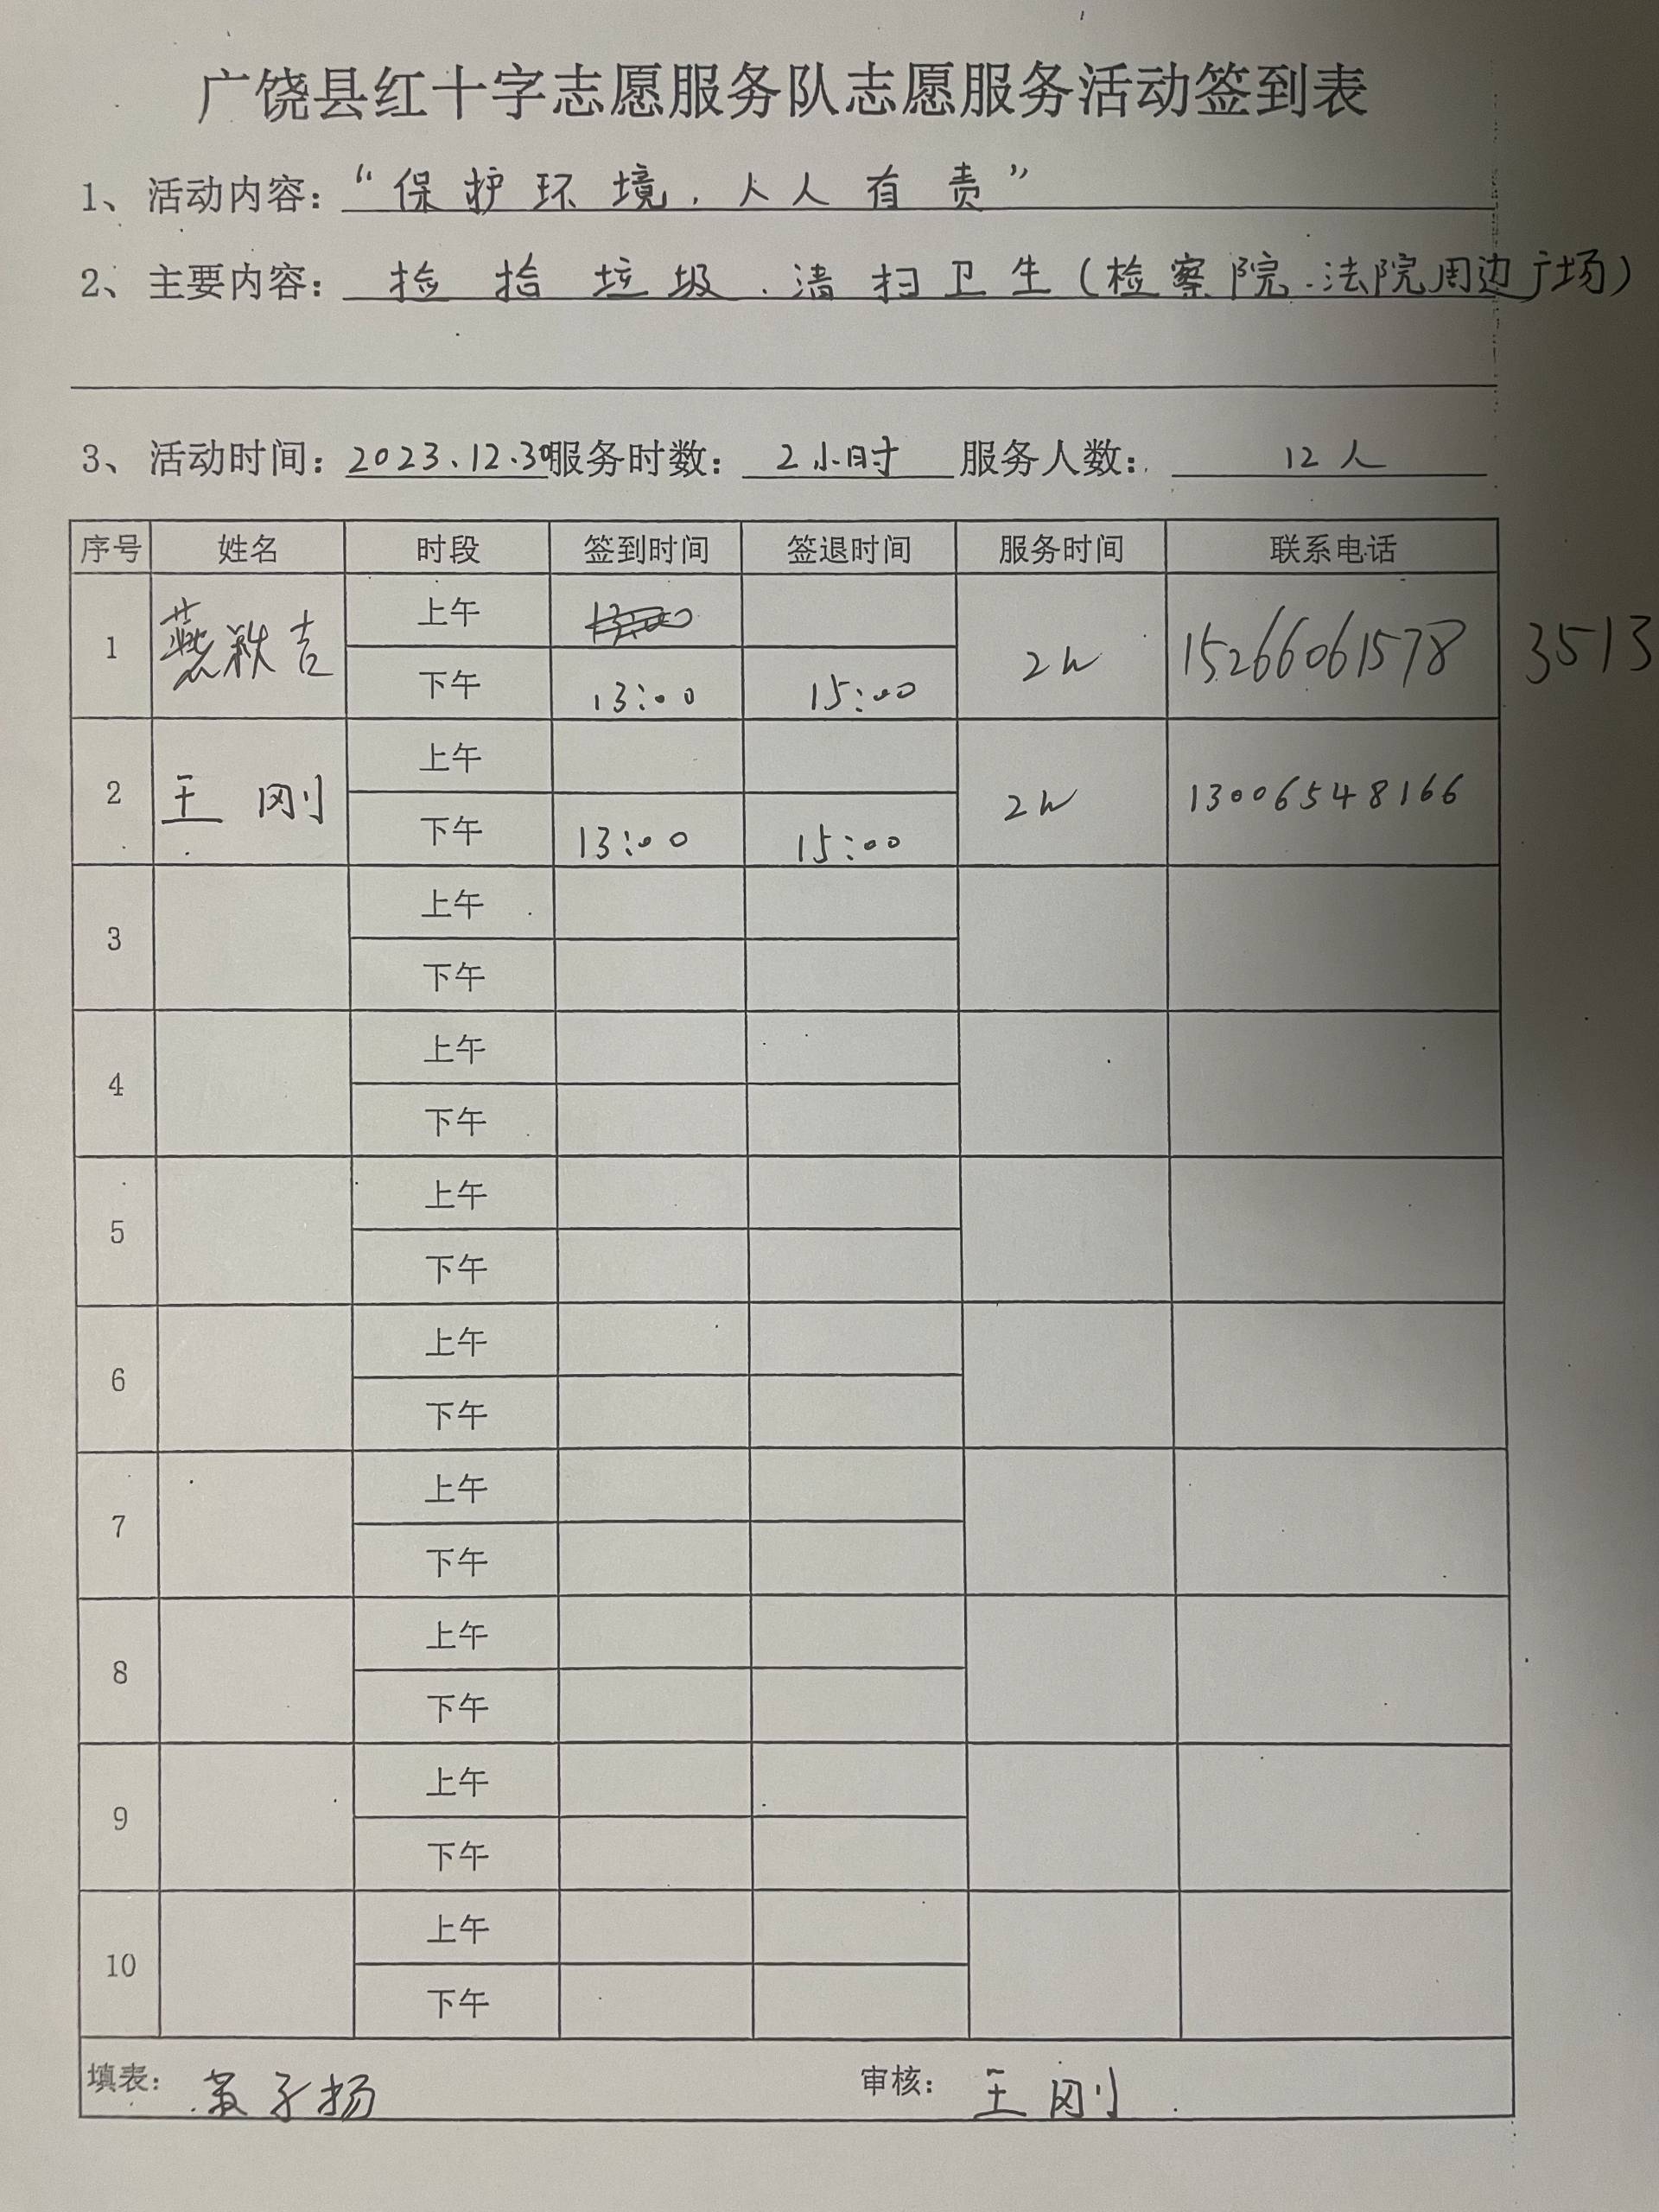 广饶县红十字志愿服务队志愿服务活动签到表
1、活动内容：“保护环境，人人有责”
2、主要内容：捡拾垃圾、清扫卫生（检察院、法院周边广场）
3、活动时间：2023.12.30 服务时数：2小时 服务人数：12人
序号 姓名 时段 签到时间 签退时间 服务时间 联系电话
1 燕秋吉 上午 2h 15266061578 3513
下午 13:00 15:00
2 王刚 上午 2h 13006548166
下午 13:00 15:00
3 上午
下午
4 上午
下午
5 上午
下午
6 上午
下午
7 上午
下午
8 上午
下午
9 上午
下午
10 上午
下午
填表： 子扬 审核：王刚